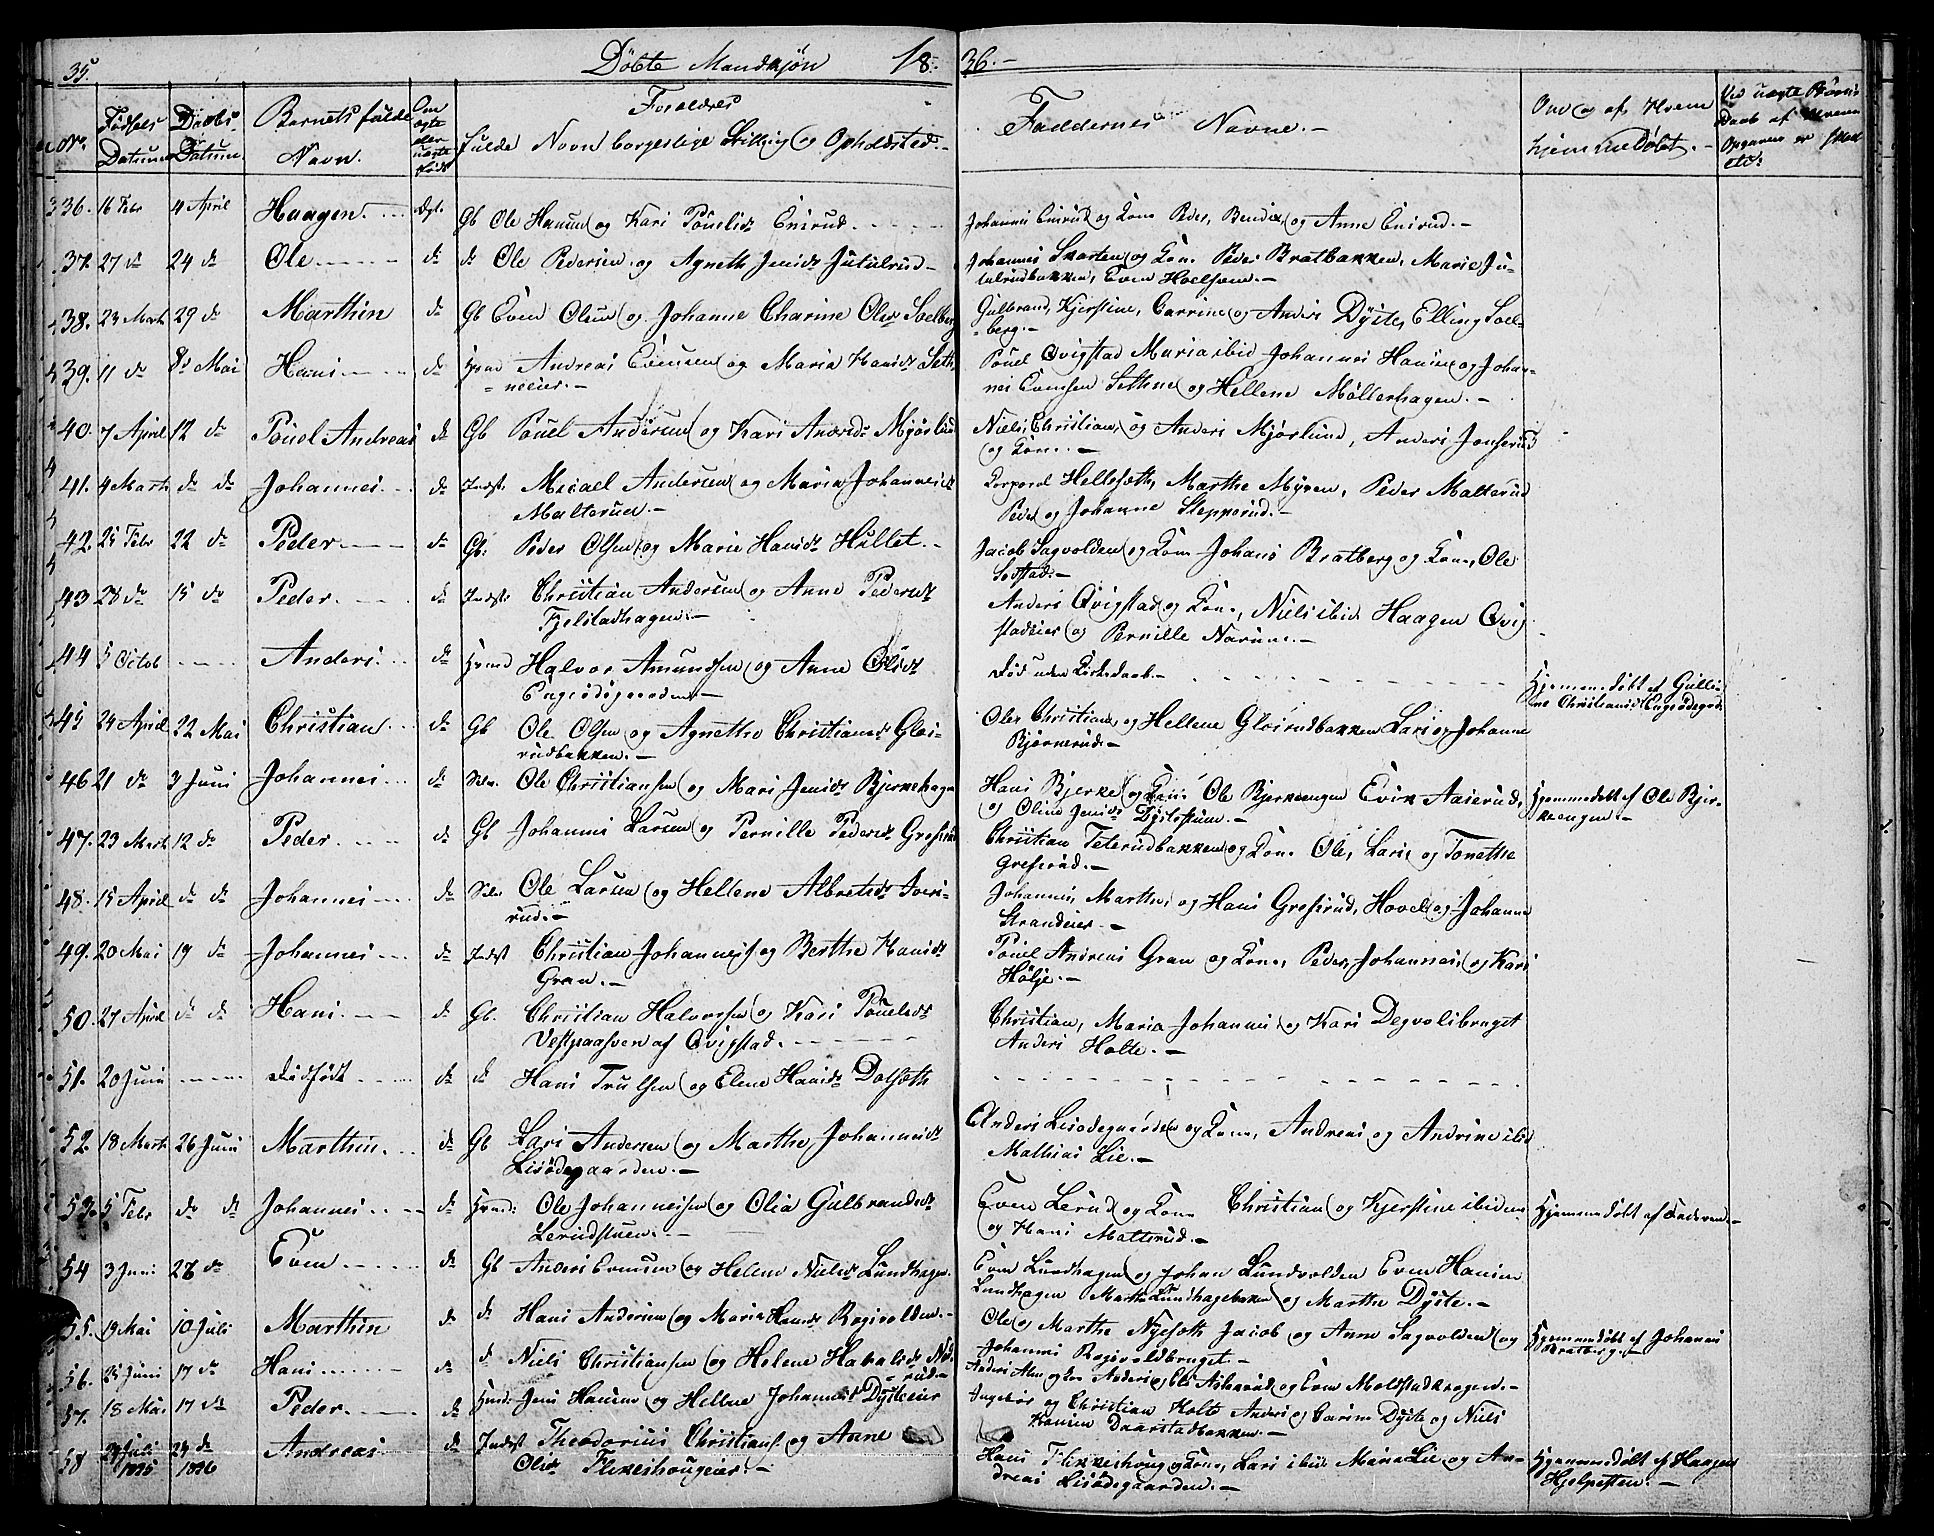 35. Döbte Mandkjön 18 36.-
No. Födsels Datum Daabs Datum Barnets fulde Navn. Om ægte eller uægte födt Forældres fulde Navn borgerlige Stilling og Opholdsted.- Faddernes Navne.- Om og af Hvem hjemmedöbt.- Ved uægte Börns Daab af Hvem Opgaven er skeet etc:
36. 16 Febr 4 April Haagen.- Ægt. Gb Ole Hansen og Kari Pouelsdr Enirud Johannes Enirud og Kone Peder, Bendix og Anne Enirud.-
37. 27 do 24 do Ole do do Ole Pedersen og Agnethe Jensdr Jutulrud- Johannes Skarten og Kone Peder Bratbakken, Marie Ju-
tulrudbakken, Even Hoelsveen.-
38. 23 Marts 29 do Marthin do Gb Even Olsen og Johanne Charine Olsdr Soelberg Gulbrand, Kjerstine, Carrine og Anders Dyste, Elling Soel-
berg.-
39. 11 do 8de Mai Hans do Huusmd Andreas Evensen og Maria Hansdr Seth-
neeier.- Pouel Qvigstad Maria ibid Johannes Hansen og Johan-
nes Evensen Sethne og Hellene Möllerhagen.-
40. 7 April 12 do Pouel Andreas do Gb Pouel Andersen og Kari Andersdr Mjörlund Niels, Christian og Anders Mjörlund, Anders Jonserud
og Kone.-
41. 4 Marts do do Johannes do Indst. Micael Andersen og Maria Johannesdr
Malterud.- Corporal Hellesæth, Marthe Myren, Peder Malterud
Peder og Johanne Stepperud.-
42. 25 Febr 22 do Peder do Gb: Peder Olsen og Marie Hansdr Hullet.- Jacob Sagvolden og Kone Johans Bratberg og Kone, Ole
Sotstad.-
43 28 do 15 do Peder do Indst: Christian Andersen og Anne Pedersdr
Fjelstadhagen.- Anders Qvigstad og Kone, Niels ibid Haagen Qvig
stadeier og Pernille Narum.-
44 5 Octob Anders do Huusmd Halvor Amundsen og Anne Olsdr
Engeödegaarden.- Död uden Kirkedaab.- Hjemmedöbt af Gulli-
ne Christiansdr Engeödegrd
45 24 April 22 Mai Christian do Gb Ole Olsen og Agnethe Christiansdr Gloi-
rudbakken.- Ole, Christian og Hellene Gloirudbakken Lars og Johanne
Bjørnerud.-
46 21 do 3 Juni Johannes do Ole Christiansen og Mari Jensdr Bjerkehagen Hans Bjerke og Kone Ole Bjerkeengen Even Aaserud,
og Oline Jensdr Dystestuen.- Hjemmedöbt af Ole Bjer-
keengen.-
47. 23 Marts 12 do Peder do Gb Johannes Larsen og Pernille Pedersdr Grefsrud Christian Teterudbakken og Kone Ole, Lars og Tonethe
Grefsrud.-
48. 15 April do do Johannes do Ole Larsen og Hellene Albretsdr Iver-
rud.- Johannes, Marthe, og Hans Grefsrud, Hovel og Johanne
Strandeier.-
49. 20 Mai 19 do Johannes do Indst Christian Johannessen og Berthe Hansdr
Gran.- Pouel Andreas Gran og Kone, Peder, Johannes, og Kari
Hölje.-
50. 27 April do do Hans do Gb. Christian Halvorsen og Kari Pouelsdr
Vestgaasven af Qvigstad. Christian, Maria Johannes og Kari Degvolsbruget
Anders Holte.-
51. 20 Juni Dödfödt do do Hans Trulsen og Elene Hansdr Dalseth
52. 18 Marts 26 Juni Marthin do Gb Lars Andersen og Marthe Johannesdr
Lisödegaarden.- Anders Lisödegaarden og Kone, Andreas og Andrine ibid
Mathias Lie.-
53. 5 Febr do do Johannes do Huusmd: Ole Johannessen og Olia Gulbrandsdr
Lerudstuen.- Even Lerud og Kone Christian og Kjerstine ibidem
og Hans Matterud.- Hjemmedöbt af Faderen.-
54 3 Juni 28 do Even do Gb Anders Evensen og Helene Nielsdr Lundhagen. Even Lundhagen og Johan Lundvolden Even Hansen
Lundhagen Marthe Lundhagebakken og Marthe Dyste.-
55. 19 Mai 10 Juli Marthin do do Hans Andersen og Marie Hansdr Rogsvolden.- Ole og Marthe Nyesæth Jacob og Anne Sagvolden og
Johannes Rogsvoldbruget.- Hjemmedöbt af Johannes
Bratberg.-
56. 25 Juni 17 do Hans do do Niels Christiansen og Helene
rud.- Anders Alm og Kone Anders og Else Askerud og Even Molstadkragen.-
57. 18 Mai 17 do Peder do Huusmd: Jens Hansen og Hellene Johannesdr Dysteeier Ingeborg og Christian Holte Anders og Carine Dyste og Niels
Hansen Daarstadbakken.-
58 29 Juli 1835 24 do 1836 Andreas do Indst Theodorius Christians. og Anne
Olsdr Flikkeshougeier.- Hans Flikkeshoug og Kone, Lars ibid Maria Lie og An-
dreas Lisödegaarden.- Hjemmedöbt af Haagen
Hjelpesten.-